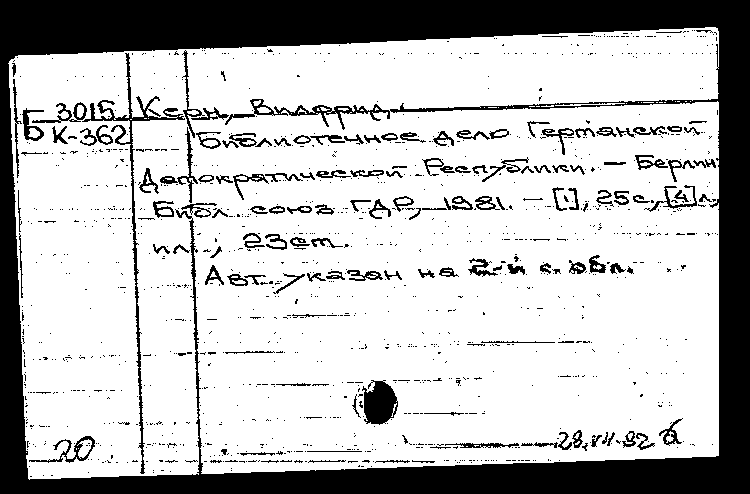 Б 3015 Керн, Вилфрид.
К-362 Библиотечное дело Германской
Демократической Республики. — Берлин:
Библ. союз ГДР, 1981. — [1], 25с., [4]л.
ил.; 23см.
Авт. указан на 2-й с. обл.
20 28.VII.82